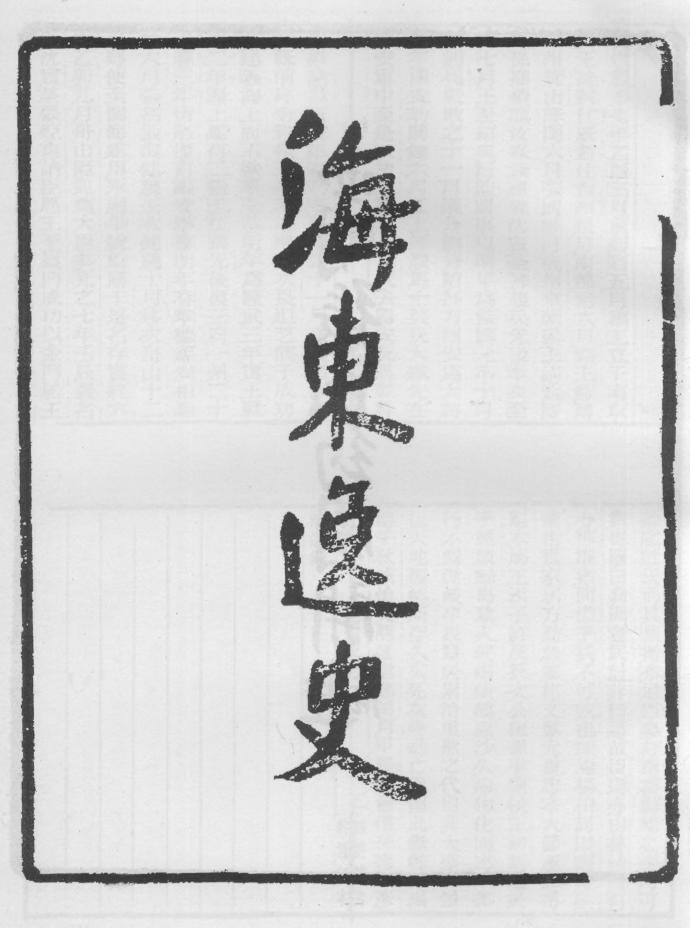 海東逸史